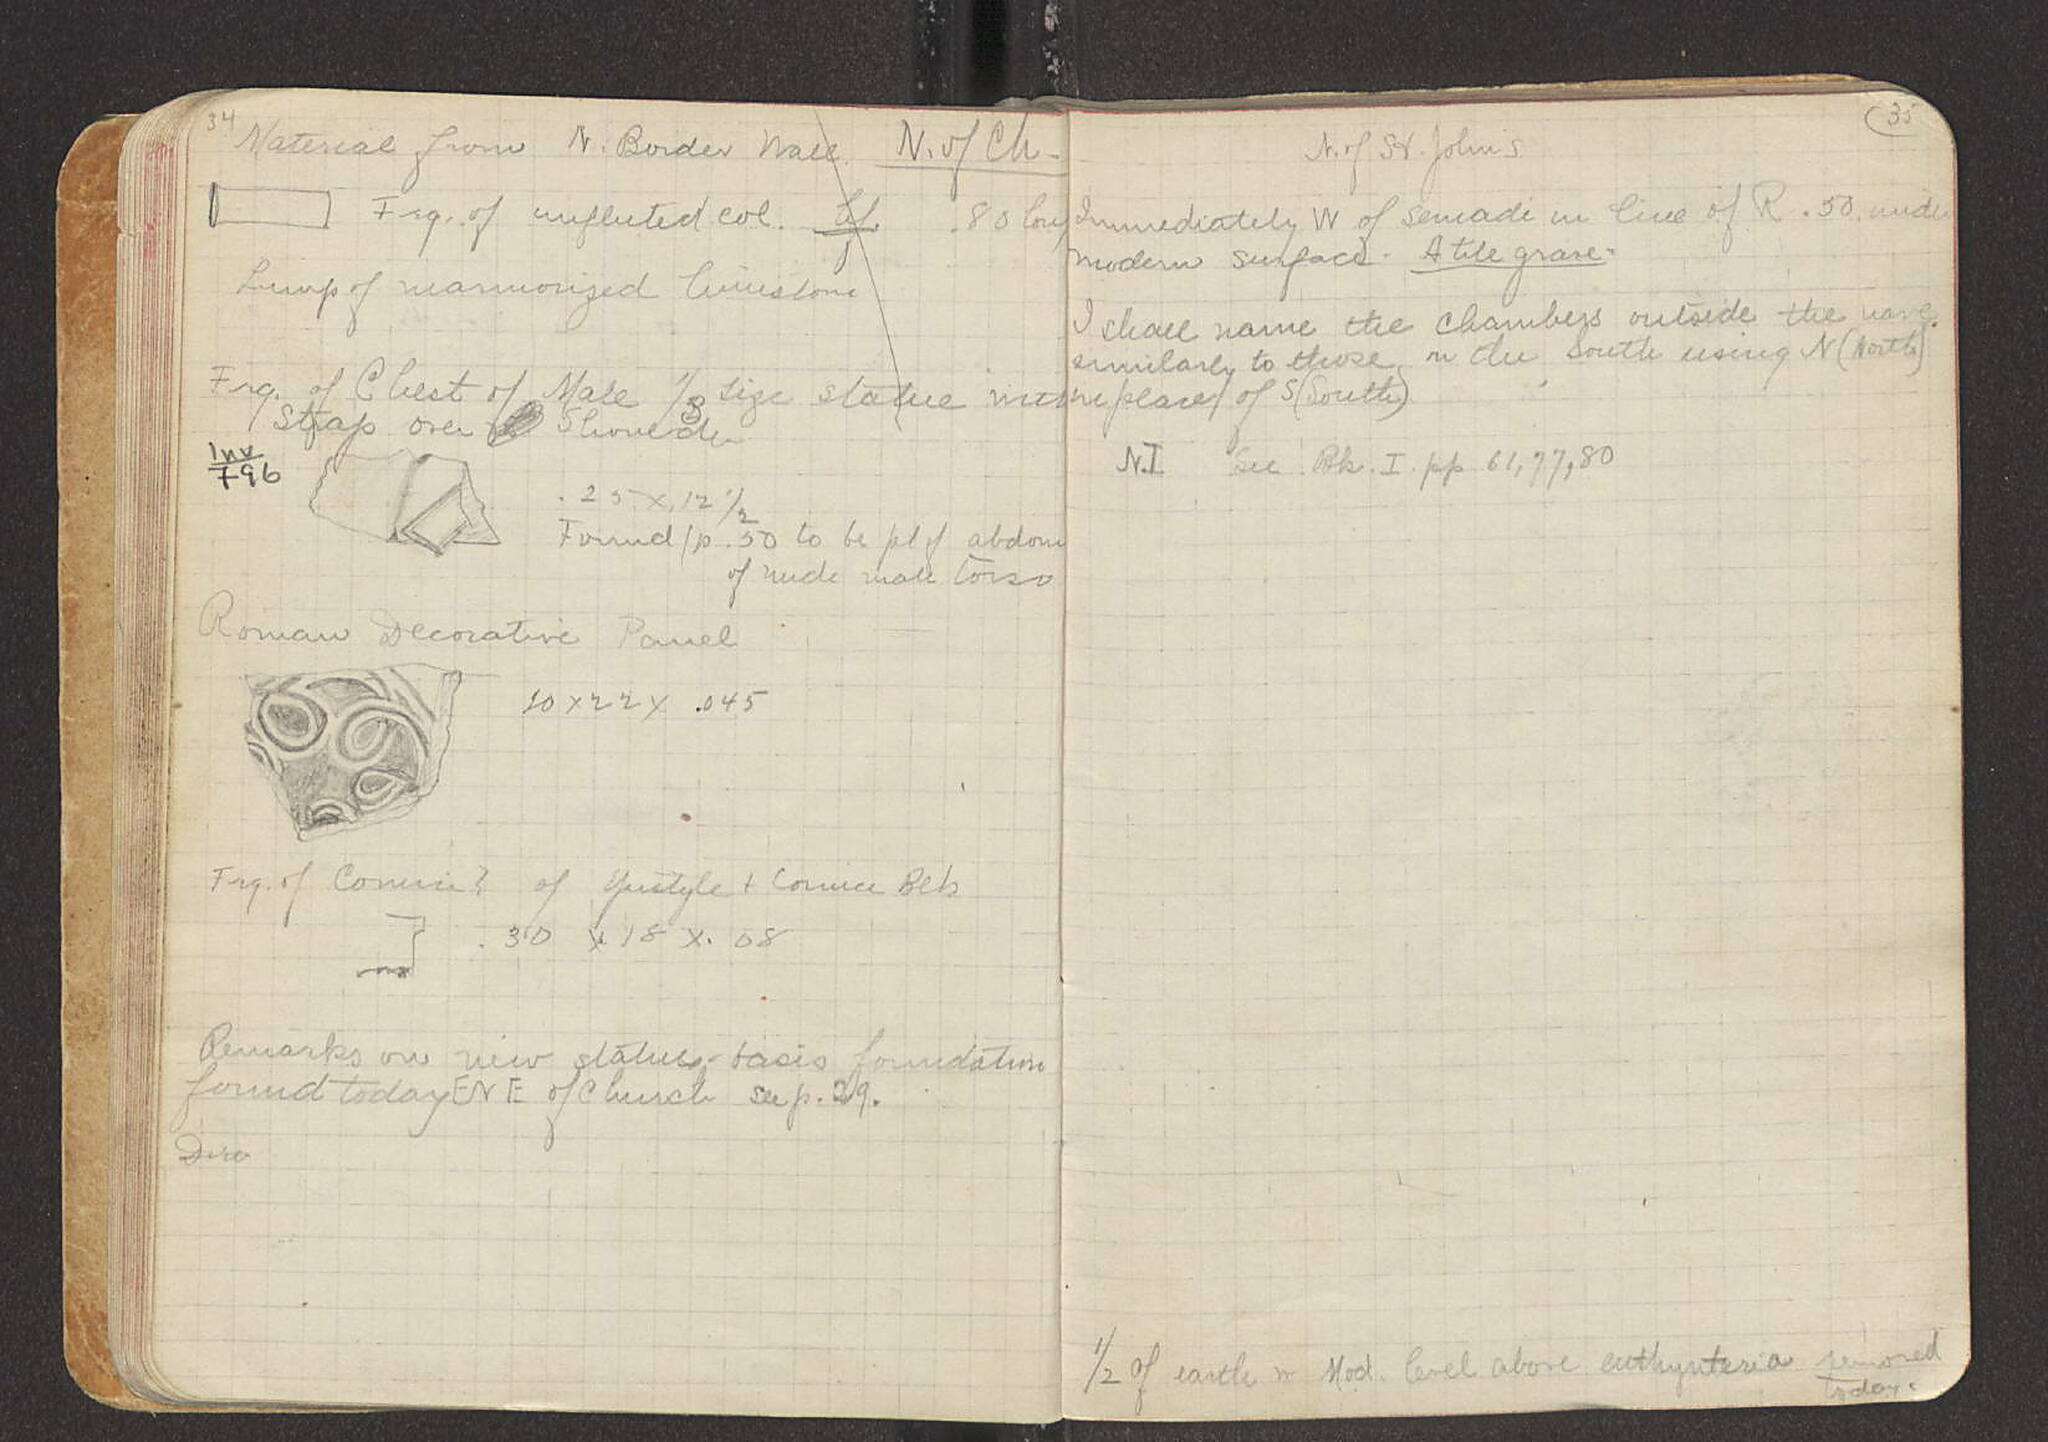 34
Material from N. Border Wall. N. of Ch.
Frg. of unfluted col. .80 long
Lump of marmorized limestone
Frg. of Chest of Male 1/3 size statue with
strap over shoulder
Inv
796
.25 x .12 1/2
Found /p. 50 to be pt of abdom
of nude male torso
Roman Decorative Panel
10 x 22 x .045
Frg. of Cornice? of Epistyle + Cornice Blks
.30 x .18 x .08
Remarks on new statue-basis foundation
found today ENE of Church see p. 29.
35
N. of St. John's
Immediately W of Semadi in line of R .50 under
modern surface. A tile grave.
I shall name the chambers outside the nave
similarly to those on the South using N (North)
in place of S (South)
N.I See Bk. I. pp 61, 77, 80
1/2 of earth Mod. level above euthynteria removed
today.